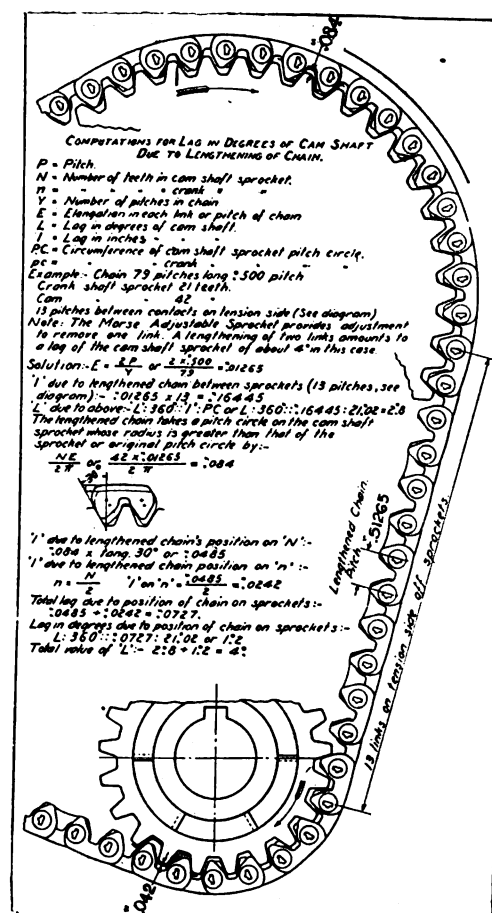 ".084
COMPUTATIONS FOR LAG IN DEGREES OF CAM SHAFT
DUE TO LENGTHENING OF CHAIN.
P = Pitch.
N = Number of teeth in cam shaft sprocket.
n = " " " " crank " "
Y = Number of pitches in chain
E = Elongation in each link or pitch of chain
L = Lag in degrees of cam shaft.
l = Lag in inches " " "
PC = Circumference of cam shaft sprocket pitch circle.
pc = " " crank " " " "
Example:- Chain 79 pitches long ".500 pitch
Crank shaft sprocket 21 teeth.
Cam " " 42 "
13 pitches between contacts on tension side (See diagram)
Note: The Morse Adjustable Sprocket provides adjustment
to remove one link. A lengthening of two links amounts to
a lag of the cam shaft sprocket of about 4° in this case.
Solution:- E = 2P/Y or 2 x .500/79 = ".01265
'l' due to lengthened chain between sprockets (13 pitches, see
diagram):- ".01265 x 13 = ".16445
'L' due to above:- L:360::l:PC or L:360::.16445:21.02 = 2.8
The lengthened chain takes a pitch circle on the cam shaft
sprocket whose radius is greater than that of the
sprocket or original pitch circle by:-
NE/2π or 42 x ".01265/2π = ".084
30°
'l' due to lengthened chain's position on 'N':-
".084 x tang. 30° or ".0485
'l' due to lengthened chain position on 'n':-
n = N/2 'l' on 'n' = ".0485/2 = ".0242
Total lag due to position of chain on sprockets:-
".0485 + ".0242 = ".0727.
Lag in degrees due to position of chain on sprockets:-
L:360::.0727:21.02 or 1.2
Total value of 'L':- 2.8 + 1.2 = 4°
Lengthened Chain.
Pitch = ".51265
13 links on tension side off sprockets.
".042